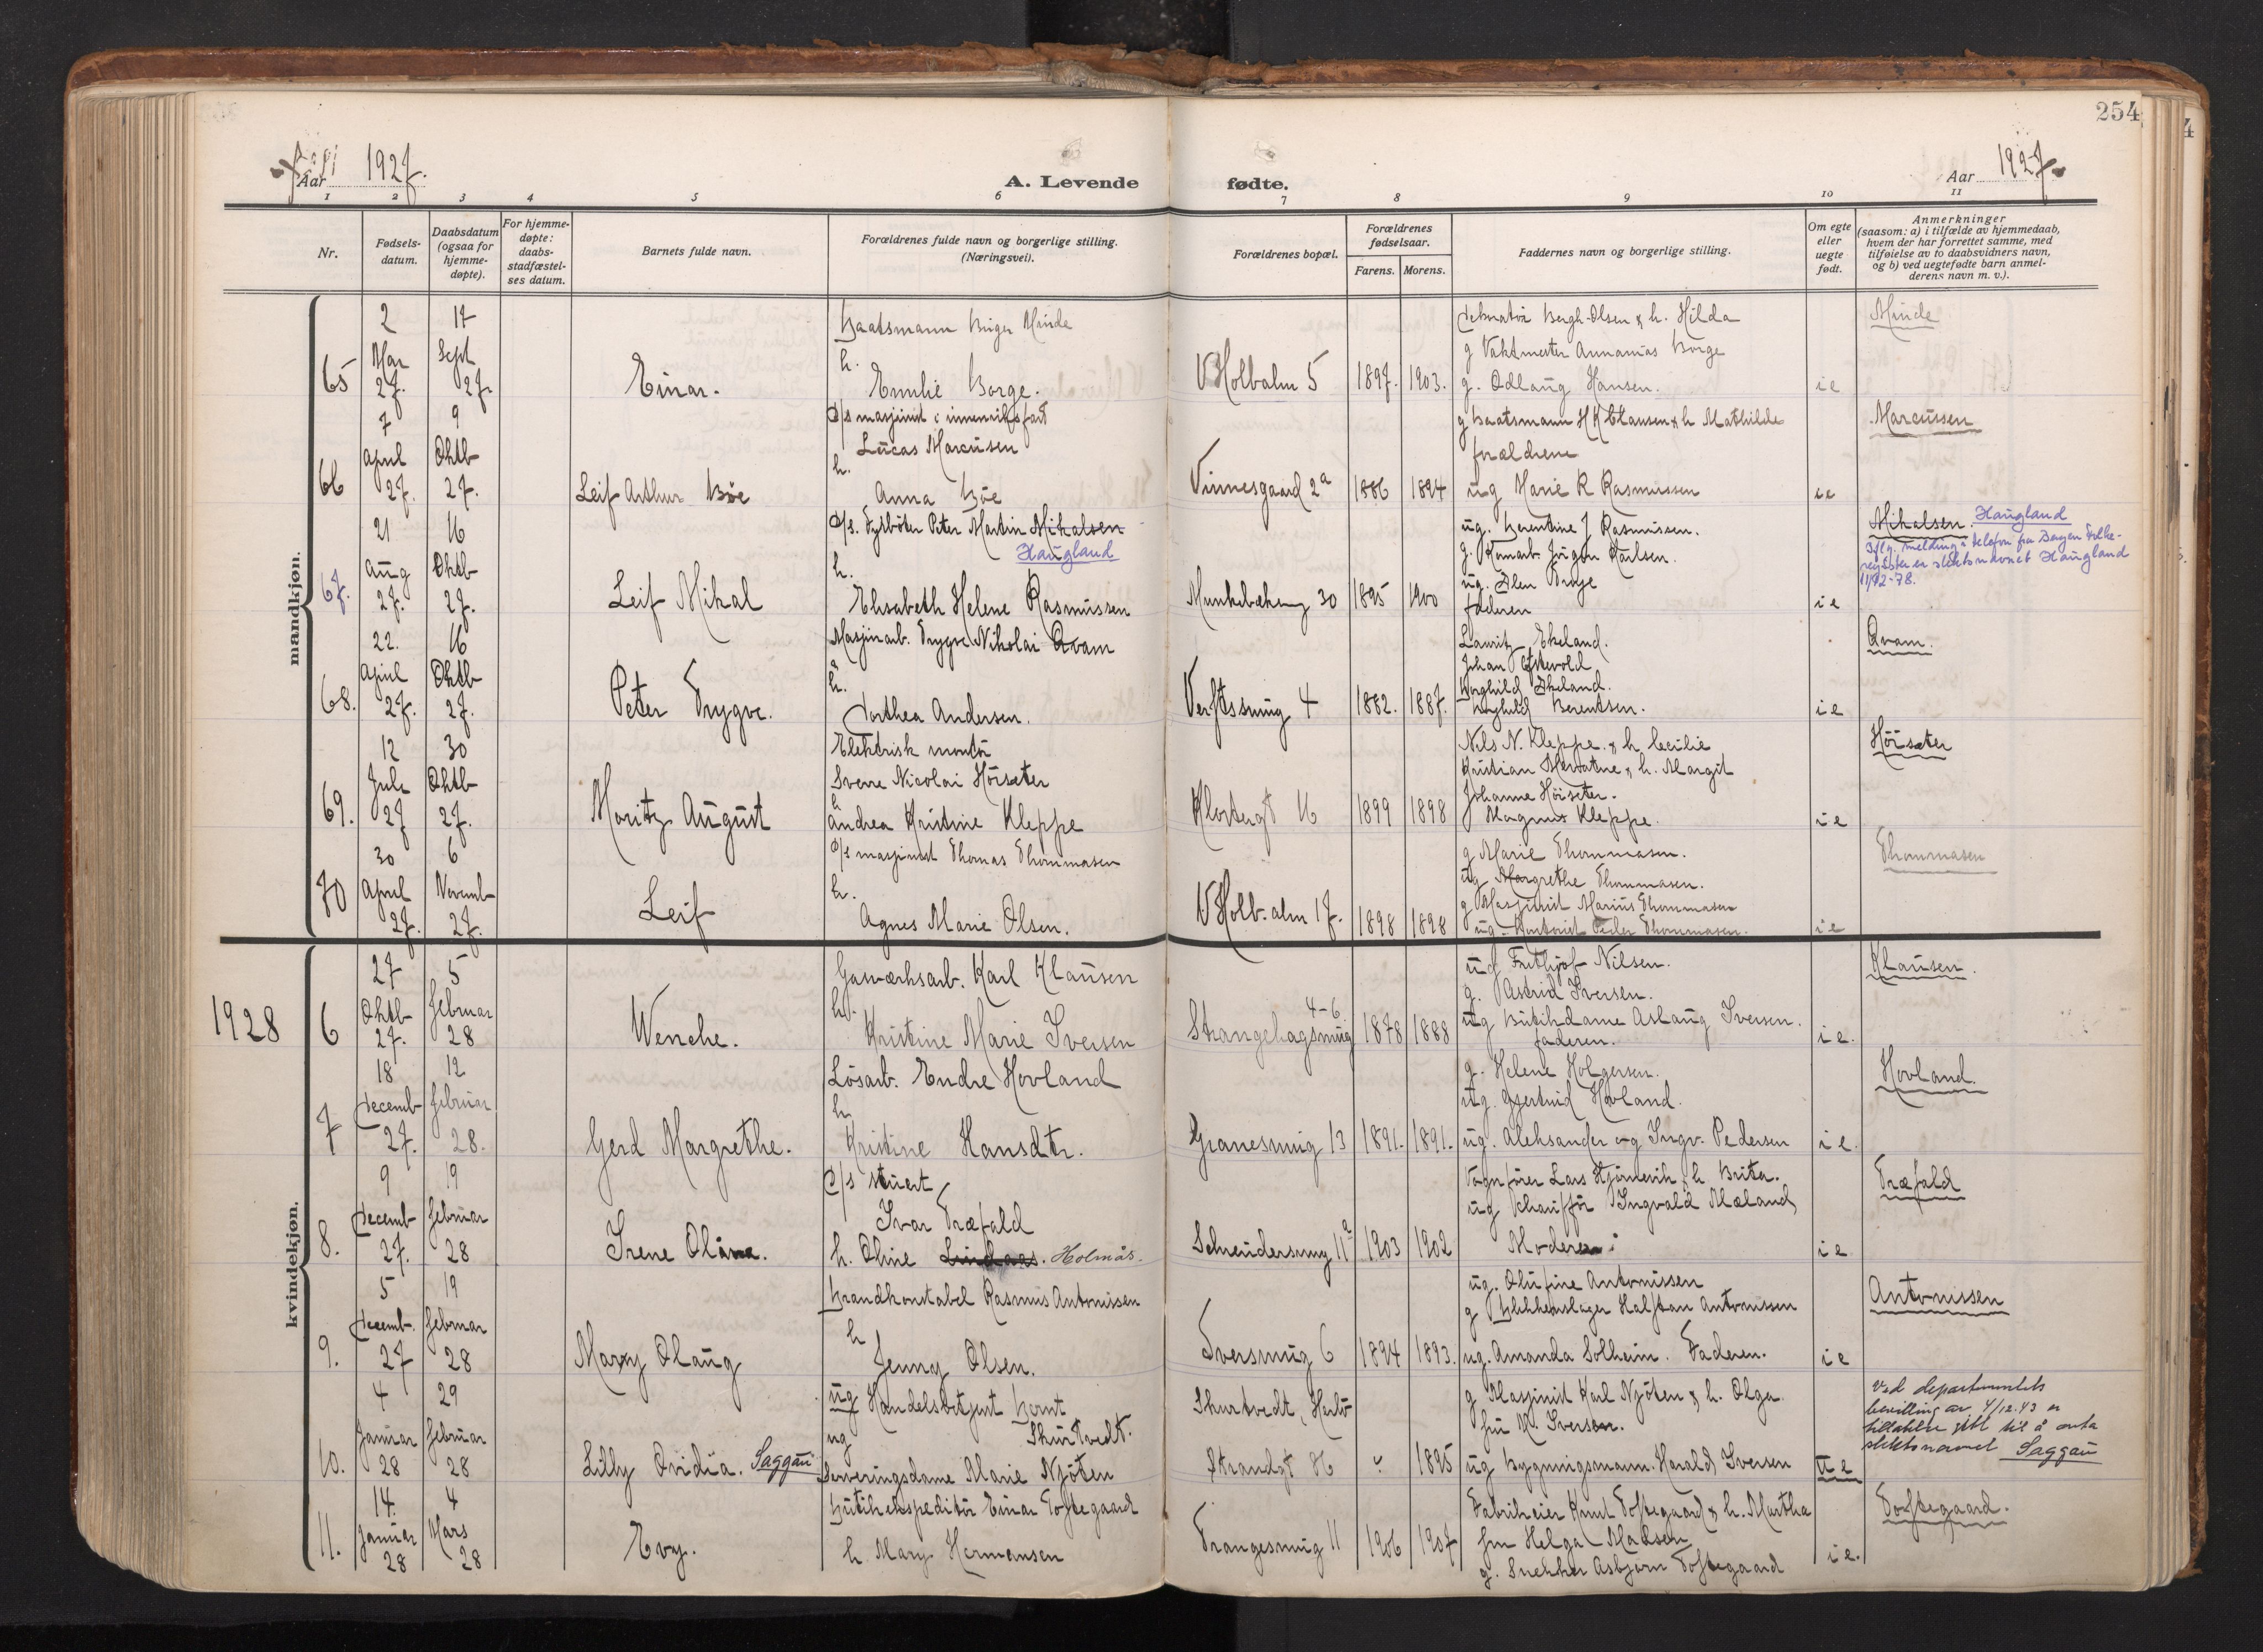 254
Aar 1927.
A. Levende
fødte.
Aar 1927.
1 2 3 4 5 6 7 8 9 10 11
Nr.
Fødsels-
datum.
Daabsdatum
(ogsaa for
hjemme-
døpte).
For hjemme-
døpte:
daabs-
stadfæstel-
ses datum.
Barnets fulde navn.
Forældrenes fulde navn og borgerlige stilling.
(Næringsvei).
Forældrenes bopæl.
Forældrenes
fødselsaar.
Farens. Morens.
Faddernes navn og borgerlige stilling.
Om egte
eller
uegte
født.
Anmerkninger
(saasom: a) i tilfælde av hjemmedaab,
hvem der har forrettet samme, med
tilføielse av to daabsvidners navn,
og b) ved uegtefødte barn anmel-
derens navn m. v.).
mandkjøn.
65
2
Mar
27.
17
Sept
27.
Einar.
Baatsmann Birger Minde
h.
Emilie Borge.
V Holbalm 5
1897. 1903.
Dekratør Bergh-Olsen & h. Hilda
g Vaktmester Annanias Borge
g. Odlaug Hansen.
i e
Minde
66
7
April
27.
9
Oktb
27.
Leif Arthur Bøe
D/s masjinist i innenriksfart
Lucas Marcusen
h.
Anna Bøe
Vinnesgaard 2a
1886 1894
g Baatsmann H K Clausen & h Mathilde
forældrene
ug Marie R Rasmussen
ie
Marcussen
67.
21
Aug
27.
16
Oktb
27.
Leif Mikal
D/s. Fyrbøter Peter Martin Mikalsen
Haugland
h.
Elisabeth Helene Rasmussen
Munkebækeng 30
1895 1900
ug. Berentine J Rasmussen.
g. Kontorb. Jørgen Karlsen.
faderen
i e
Mikalsen. Haugland
Iflg. melding i telefon fra Bergen Folke-
register er slektsnavnet Haugland
11/12-78.
68.
22.
April
27.
16
Oktb
27.
Peter Trygve.
Masjinarb. Trygve Nikolai Qvam
h.
Dorthea Andersen.
Verftssmug 4
1882. 1887.
Lauritz Ekeland.
Johan Østevold
Borghild Ekeland.
Borghild Berentsen.
i e
Qvam.
69.
12
Juli
27
30
Oktb
27.
Moritz August
Elektrisk montør
Sverre Nicolai Höisæter
h
Andrea Kristine Kleppe
Klostergt 16
1899 1898
Nils N. Kleppe & h Cecilie
Kristian Mervatne & h. Margit
Johanne Höisæter.
Magnus Kleppe.
i e
Höisæter
70
30
April
27.
6
Novemb
27.
Leif
D/s masjinist Thomas Thommasen
h.
Agnes Marie Olsen.
V Holb. alm 17.
1898 1898
g Marie Thommasen.
ug Margrethe Thommasen.
g Masjinist Marius Thommasen
ug. Kontorist Peder Thommasen.
i e
Thommasen
kvindekjøn.
1928
6
27
Oktb
27.
5
Februar
28
Wenche.
Gasværksarb. Karl Klausen
h.
Kristine Marie Iversen
4-6
Strangehagsmug
1878 1888
ug Frithjof Nilsen.
g. Astrid Iversen.
ug Butikdame Aslaug Iversen.
faderen.
i e.
Klausen.
7
18
Decemb
27.
12
Februar
28.
Gerd Margrethe.
Løsarb. Endre Hovland
h
Kristine Hansdtr.
Granesmug 13
1891. 1891.
g. Helene Holgersen.
ug. Gjertrud Hovland.
ug. Aleksander og Ingv. Pedersen
i e.
Hovland.
8.
9
Decemb
27.
19
Februar
28
Irene Oline.
D/s stuert
Ivar Træfald
h. Oline Lindaas. Holmås.
Schreudersmug 11a
1903 1902
Vognfører Lars Kjørlevik & h. Brita.
ug Schauffør Ingvald Mæland
Moderen.
i e
Træfald
9.
5
Decemb.
27
19
Februar
28
Mary Olaug
Brandkonstabel Rasmus Antonissen
h
Jenny Olsen.
Tversmug 6
1894 1893.
ug. Olufine Antonissen
g Blikkenslager Halfdan Antonissen
ug. Amanda Solheim. Faderen.
i e
Antonissen
10.
4
Januar
28
29
Februar
28
Lilly Ovidia. Saggau
ug Handelsbetjent Bernt
Skurtvedt.
ug
Serveringsdame Marie Njöten
Skurtvedt, Herlö
Strandgt 16
" 1895
g Masjinist Karl Njöten & h. Olga
fru M. Iversen.
ug Bygningsmann. Harald Iversen
u e
Ved departementets
bevilling av 4/12.43 er
tillatelse gitt til å anta
slektsnavnet Saggau
11.
14.
Januar
28
4
Mars
28
Evy.
Butikekspeditör Einar Toftegaard
h. Mary Hermansen
Trangesmug 11
1906 1907
Fabrikeier Knut Toftegaard & h. Martha
fru Helga Madsen
g. Snekker Asbjørn Toftegaard
i e.
Toftegaard.